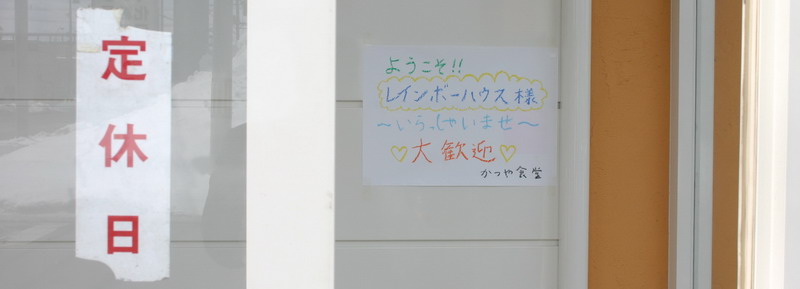 定休日
ようこそ!!
レインボーハウス様
～いらっしゃいませ～
♡大歓迎♡
かつや食堂